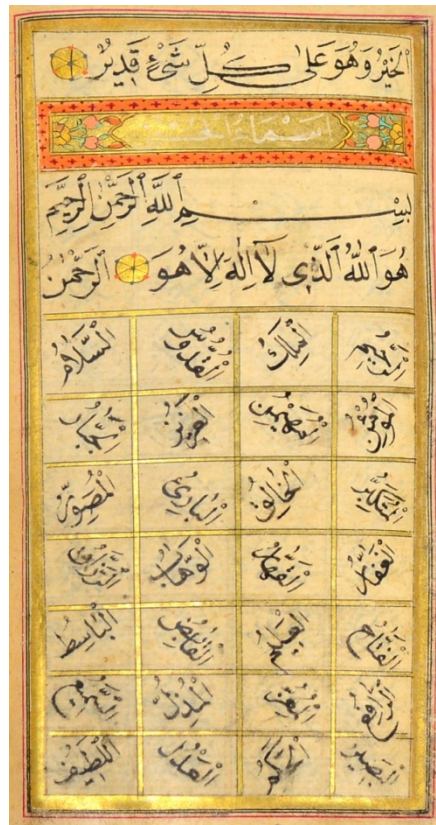 الْخَيْرُ وَهُوَ عَلَىٰ كُلِّ شَيْءٍ قَدِيرٌ
اسماء
بِسْمِ اللَّهِ الرَّحْمٰنِ الرَّحِيمِ
هُوَ اللَّهُ الَّذِى لَآ اِلٰهَ اِلَّا هُوَ الرَّحْمٰنُ
الرَّحِيمُ الْمَلِكُ الْقُدُّوسُ السَّلَامُ
الْمُؤْمِنُ الْمُهَيْمِنُ الْعَزِيزُ الْجَبَّارُ
الْمُتَكَبِّرُ الْخَالِقُ الْبَارِئُ الْمُصَوِّرُ
الْغَفَّارُ الْقَهَّارُ الْوَهَّابُ الرَّزَّاقُ
الْفَتَّاحُ الْعَلِيمُ الْقَابِضُ الْبَاسِطُ
الرَّافِعُ الْمُعِزُّ الْمُذِلُّ السَّمِيعُ
الْبَصِيرُ الْحَكَمُ الْعَدْلُ اللَّطِيفُ